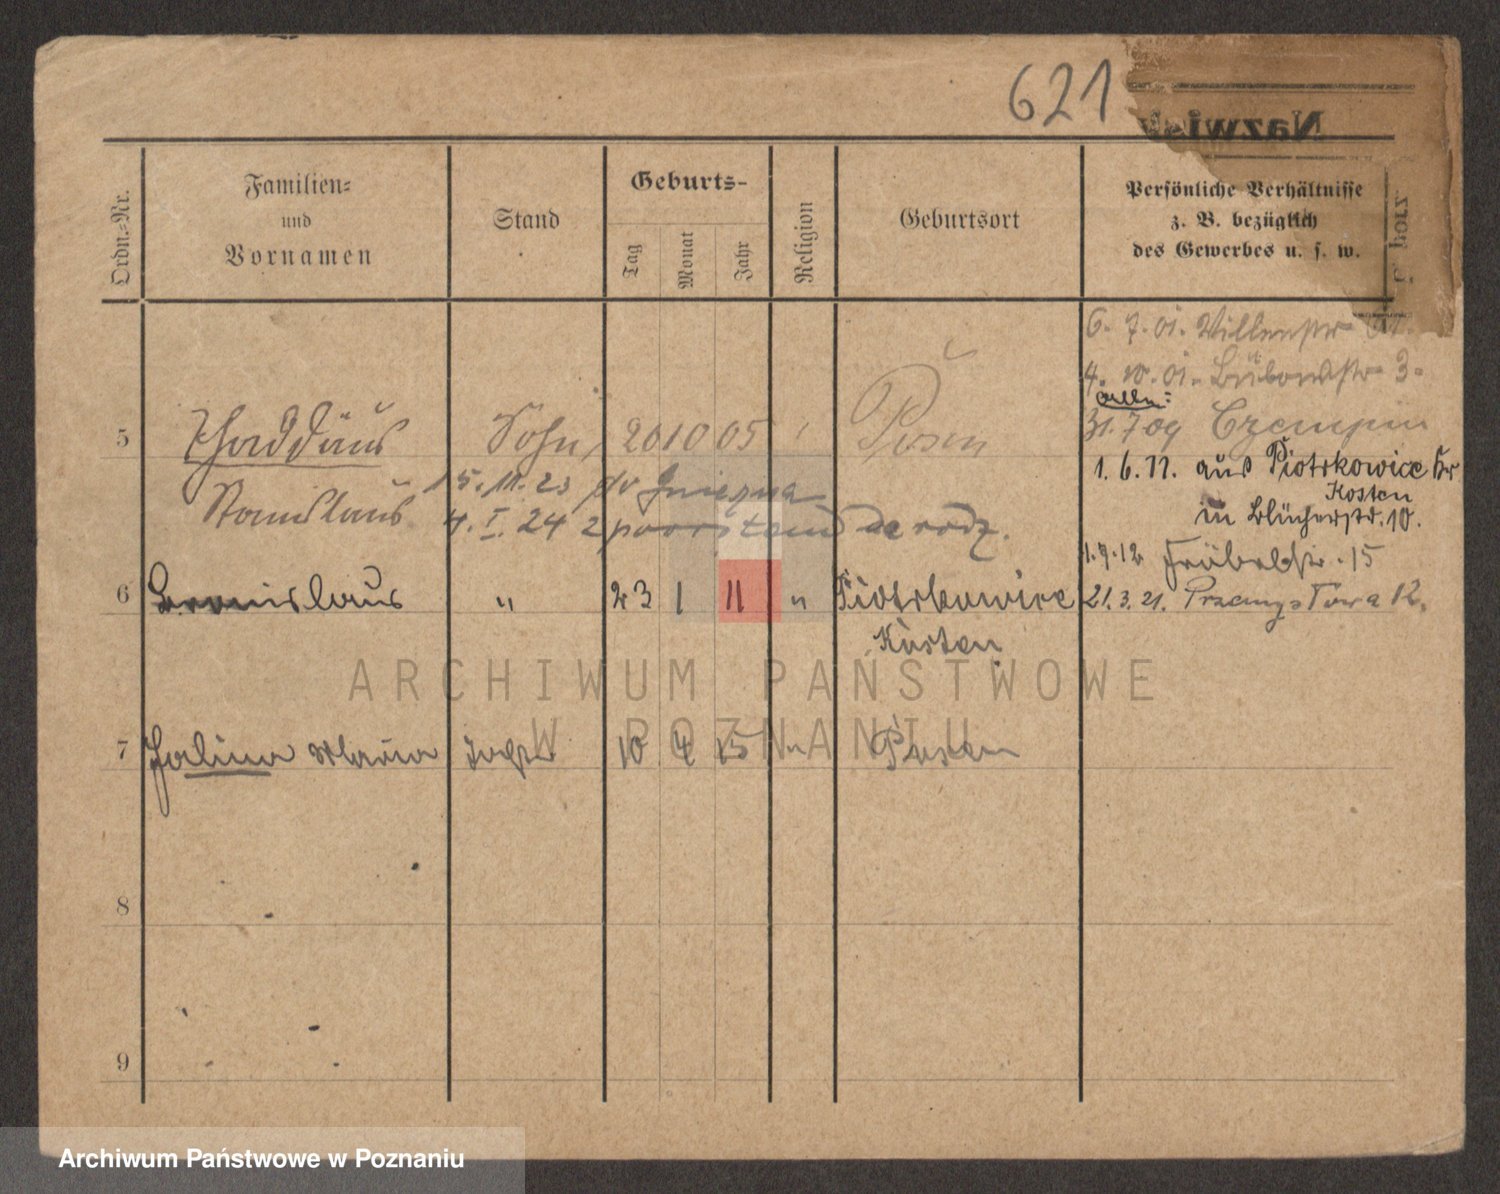 621
Nazwisk
Ordn.-Nr.
Familien-
und
Vornamen
Stand
Geburts-
Tag
Monat
Jahr
Religion
Geburtsort
Persönliche Verhältnisse
z. B. bezüglich
des Gewerbes u. s. w.
6. 7. 01.
4. 10. 01. 3.
31. 7 09 Czempin
5 Thaddäus Sohn 20 10 05 Posen
1. 6. 11. aus Piotrkowice Kr
Kosten
in Blücherstr. 10.
Stanislaus 15. 11. 23 Gniezna
4. I. 24 z powrotem do rodz.
1. 9. 12 Fröbelstr. 15
6 Bronislaus " 23 1 11 " Piotrkowice
Kosten
21. 3. 21. 12.
7 Halina Maria Tocht 10 4 15 " Posen
8
9
ARCHIWUM PAŃSTWOWE
W POZNANIU
Archiwum Państwowe w Poznaniu